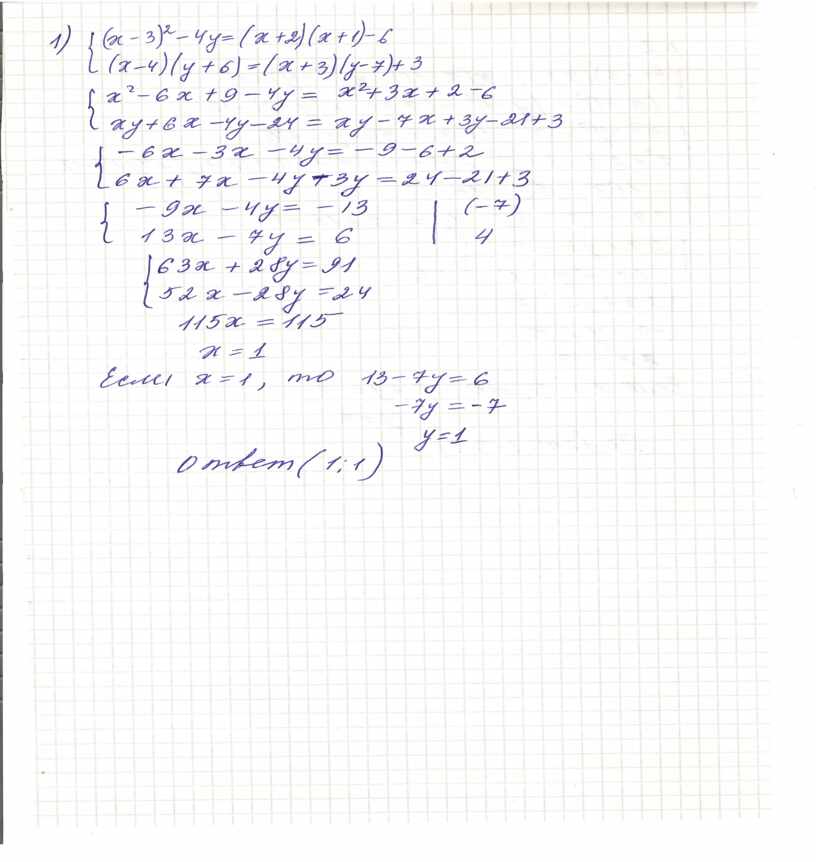 1) { (x-3)² - 4y = (x+2)(x+1) - 6
(x-4)(y+6) = (x+3)(y-7) + 3
{ x² - 6x + 9 - 4y = x² + 3x + 2 - 6
xy + 6x - 4y - 24 = xy - 7x + 3y - 21 + 3
{ -6x - 3x - 4y = -9 - 6 + 2
6x + 7x - 4y - 3y = 24 - 21 + 3
{ -9x - 4y = -13 | (-7)
13x - 7y = 6 | 4
{ 63x + 28y = 91
52x - 28y = 24
115x = 115
x = 1
Если x = 1, то 13 - 7y = 6
-7y = -7
y = 1
Ответ (1;1)